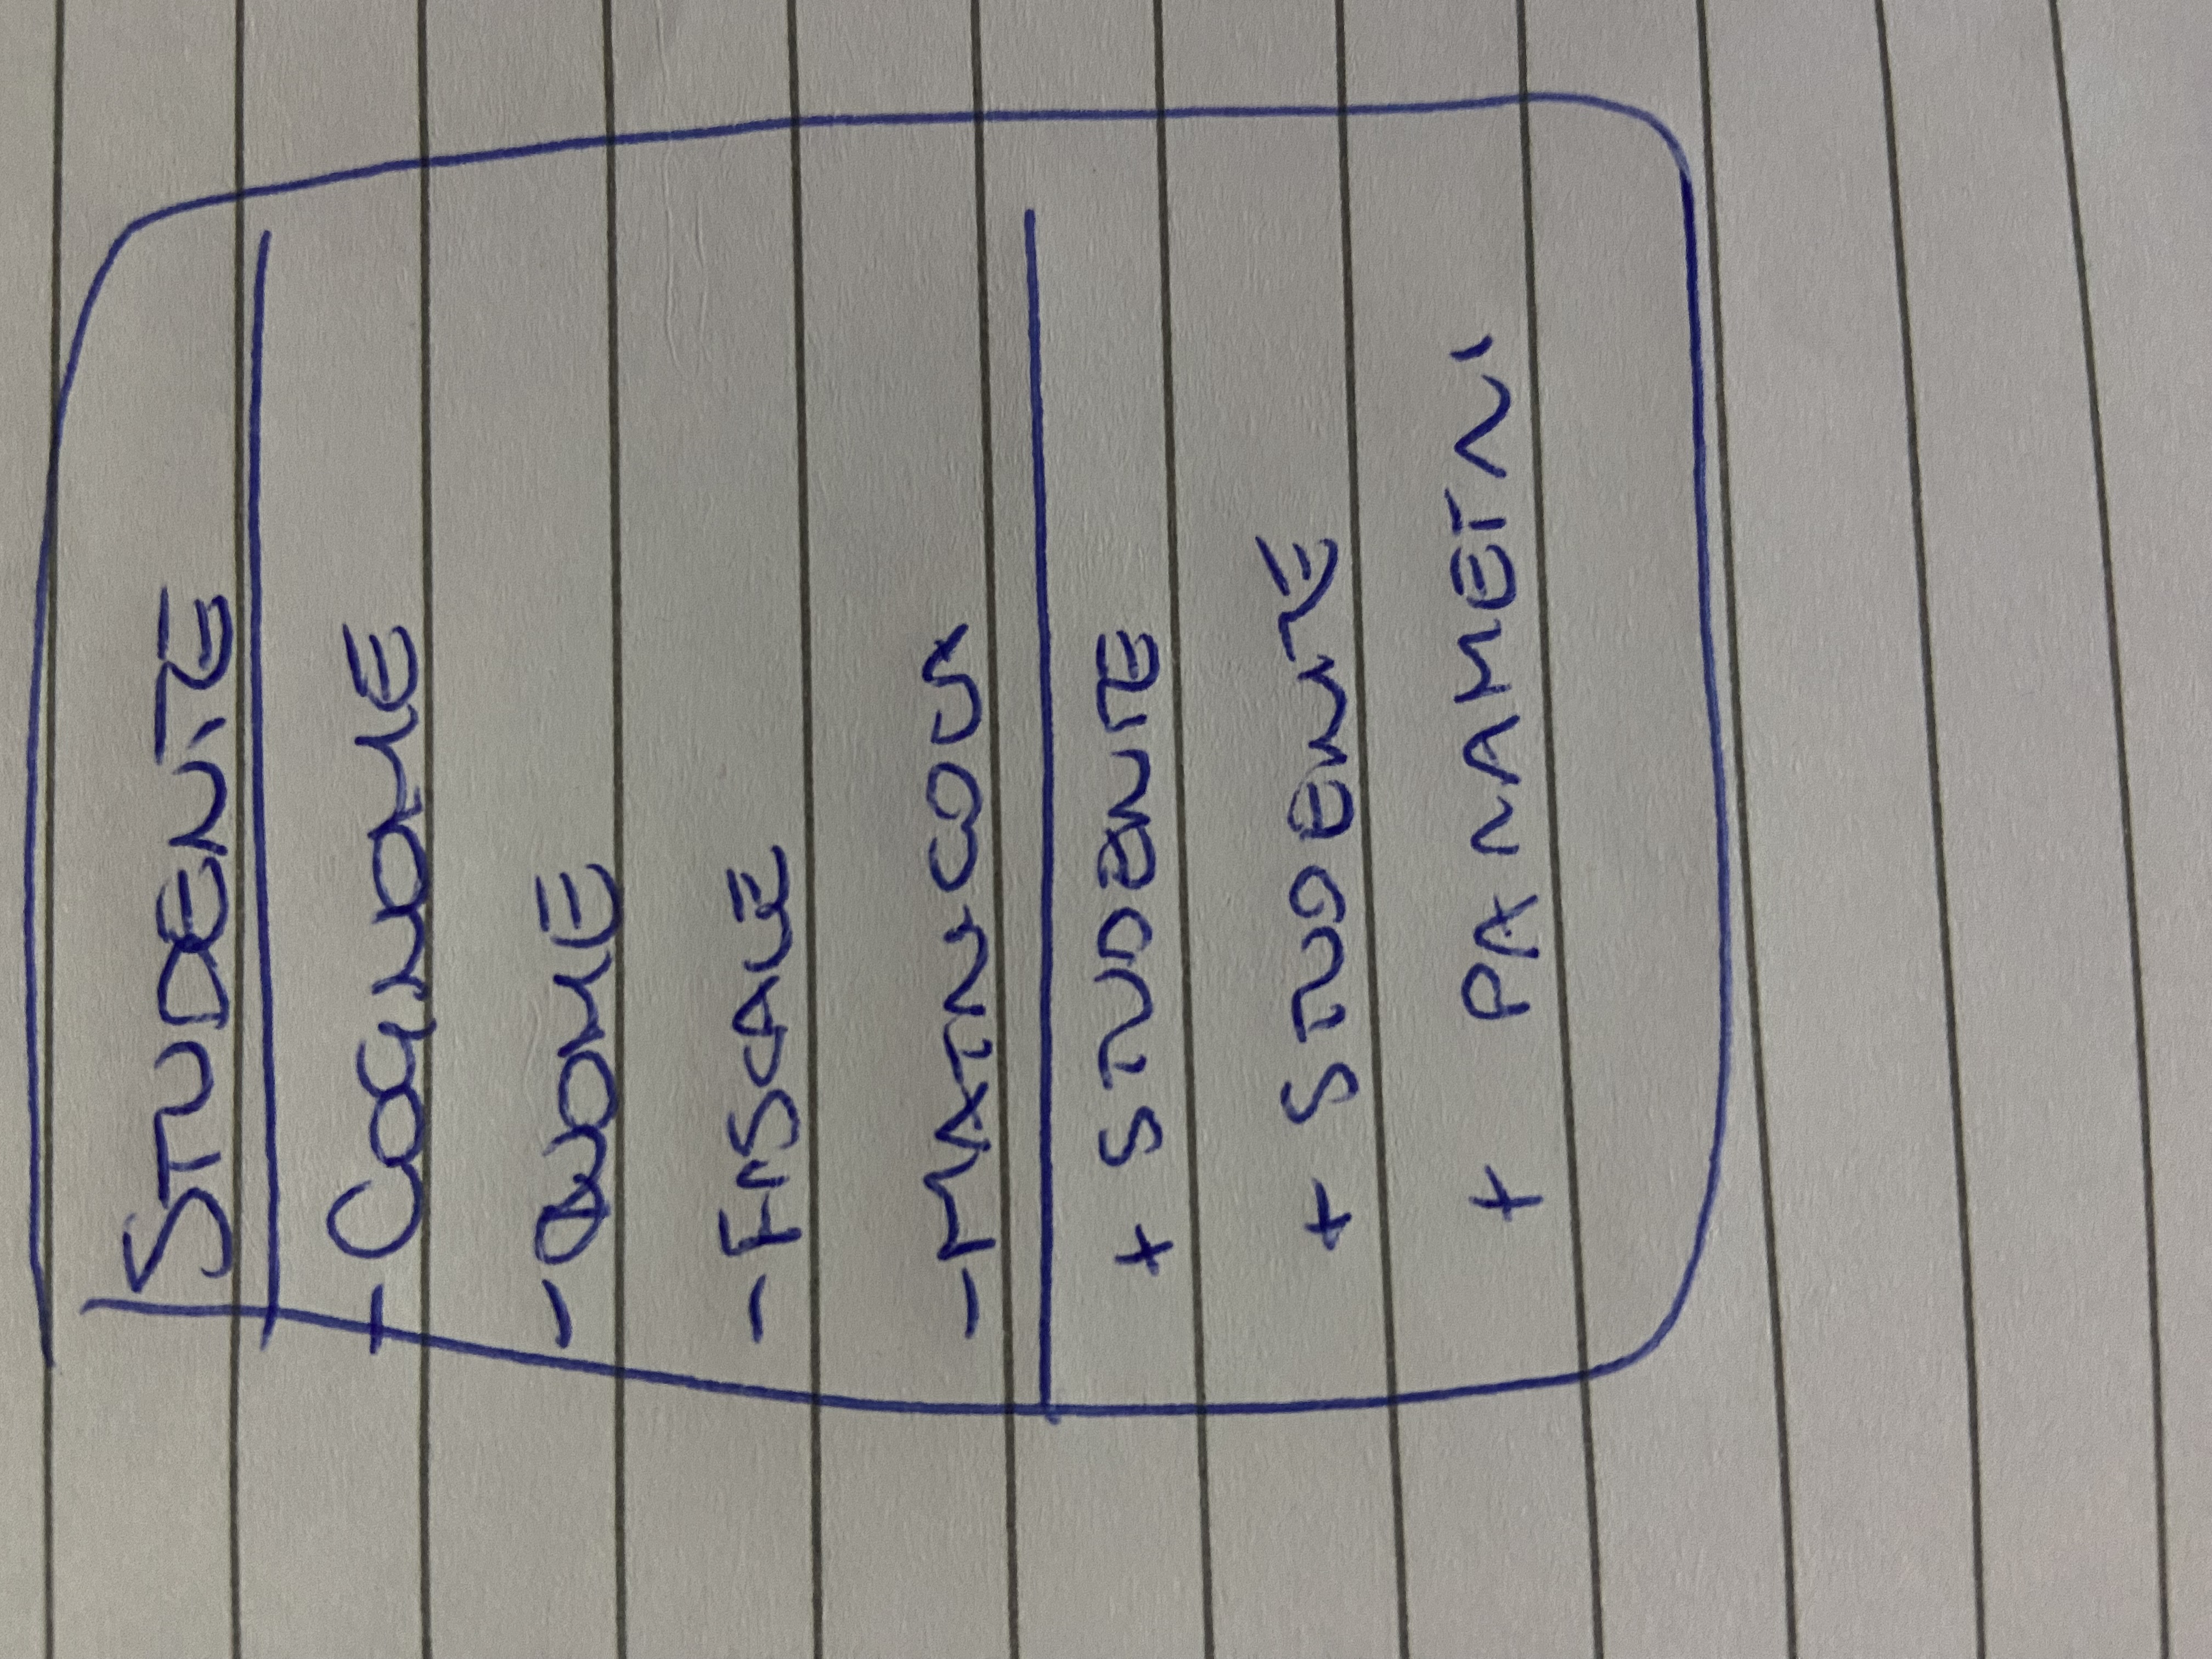 STUDENTE
- COGNOME
- NOME
- FISCALE
- MATRICOLA
+ STUDENTE
+ STUDENTE
+ PARAMETRI